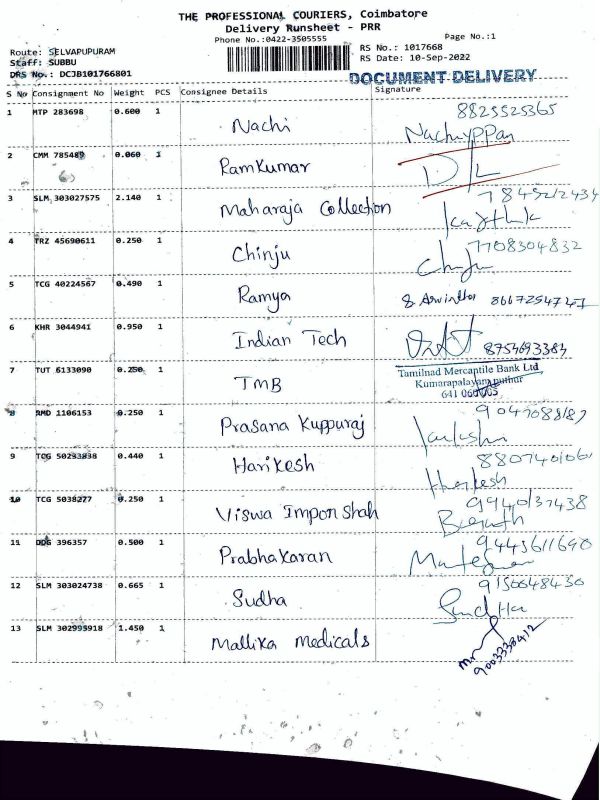 THE PROFESSIONAL COURIERS, Coimbatore
Delivery Runsheet - PRR
Phone No.:0422-3505555
Page No.:1
Route: SELVAPUPURAM
RS No.: 1017668
Staff: SUBBU
RS Date: 10-Sep-2022
DRS No.: DCJB101766801
DOCUMENT DELIVERY
S No Consignment No Weight PCS Consignee Details Signature
1 MTP 283698 0.600 1 Nachi 8825525365
Nachiyppan
2 CMM 785489 0.060 1 RamKumar
3 SLM 303027575 2.140 1 Maharaja Collection
4 TRZ 45690611 0.250 1 Chinju 7708304832
5 TCG 40224567 0.490 1 Ramya
6 KHR 3044941 0.950 1 Indian Tech 8754693384
7 TUT 6133090 0.250 1 TMB
Tamilnad Mercantile Bank Ltd
Kumarapalayam puthur
641
8 RMD 1106153 0.250 1 Prasana Kuppuraj
9 TCG 50233838 0.440 1 Harikesh
10 TCG 5038277 0.250 1 Viswa Impon Shah 9940137438
11 DDG 396357 0.500 1 Prabhakaran
12 SLM 303024738 0.665 1 Sudha 9150648430
Sudha
13 SLM 302995918 1.450 1 Mallika Medicals
9003338412